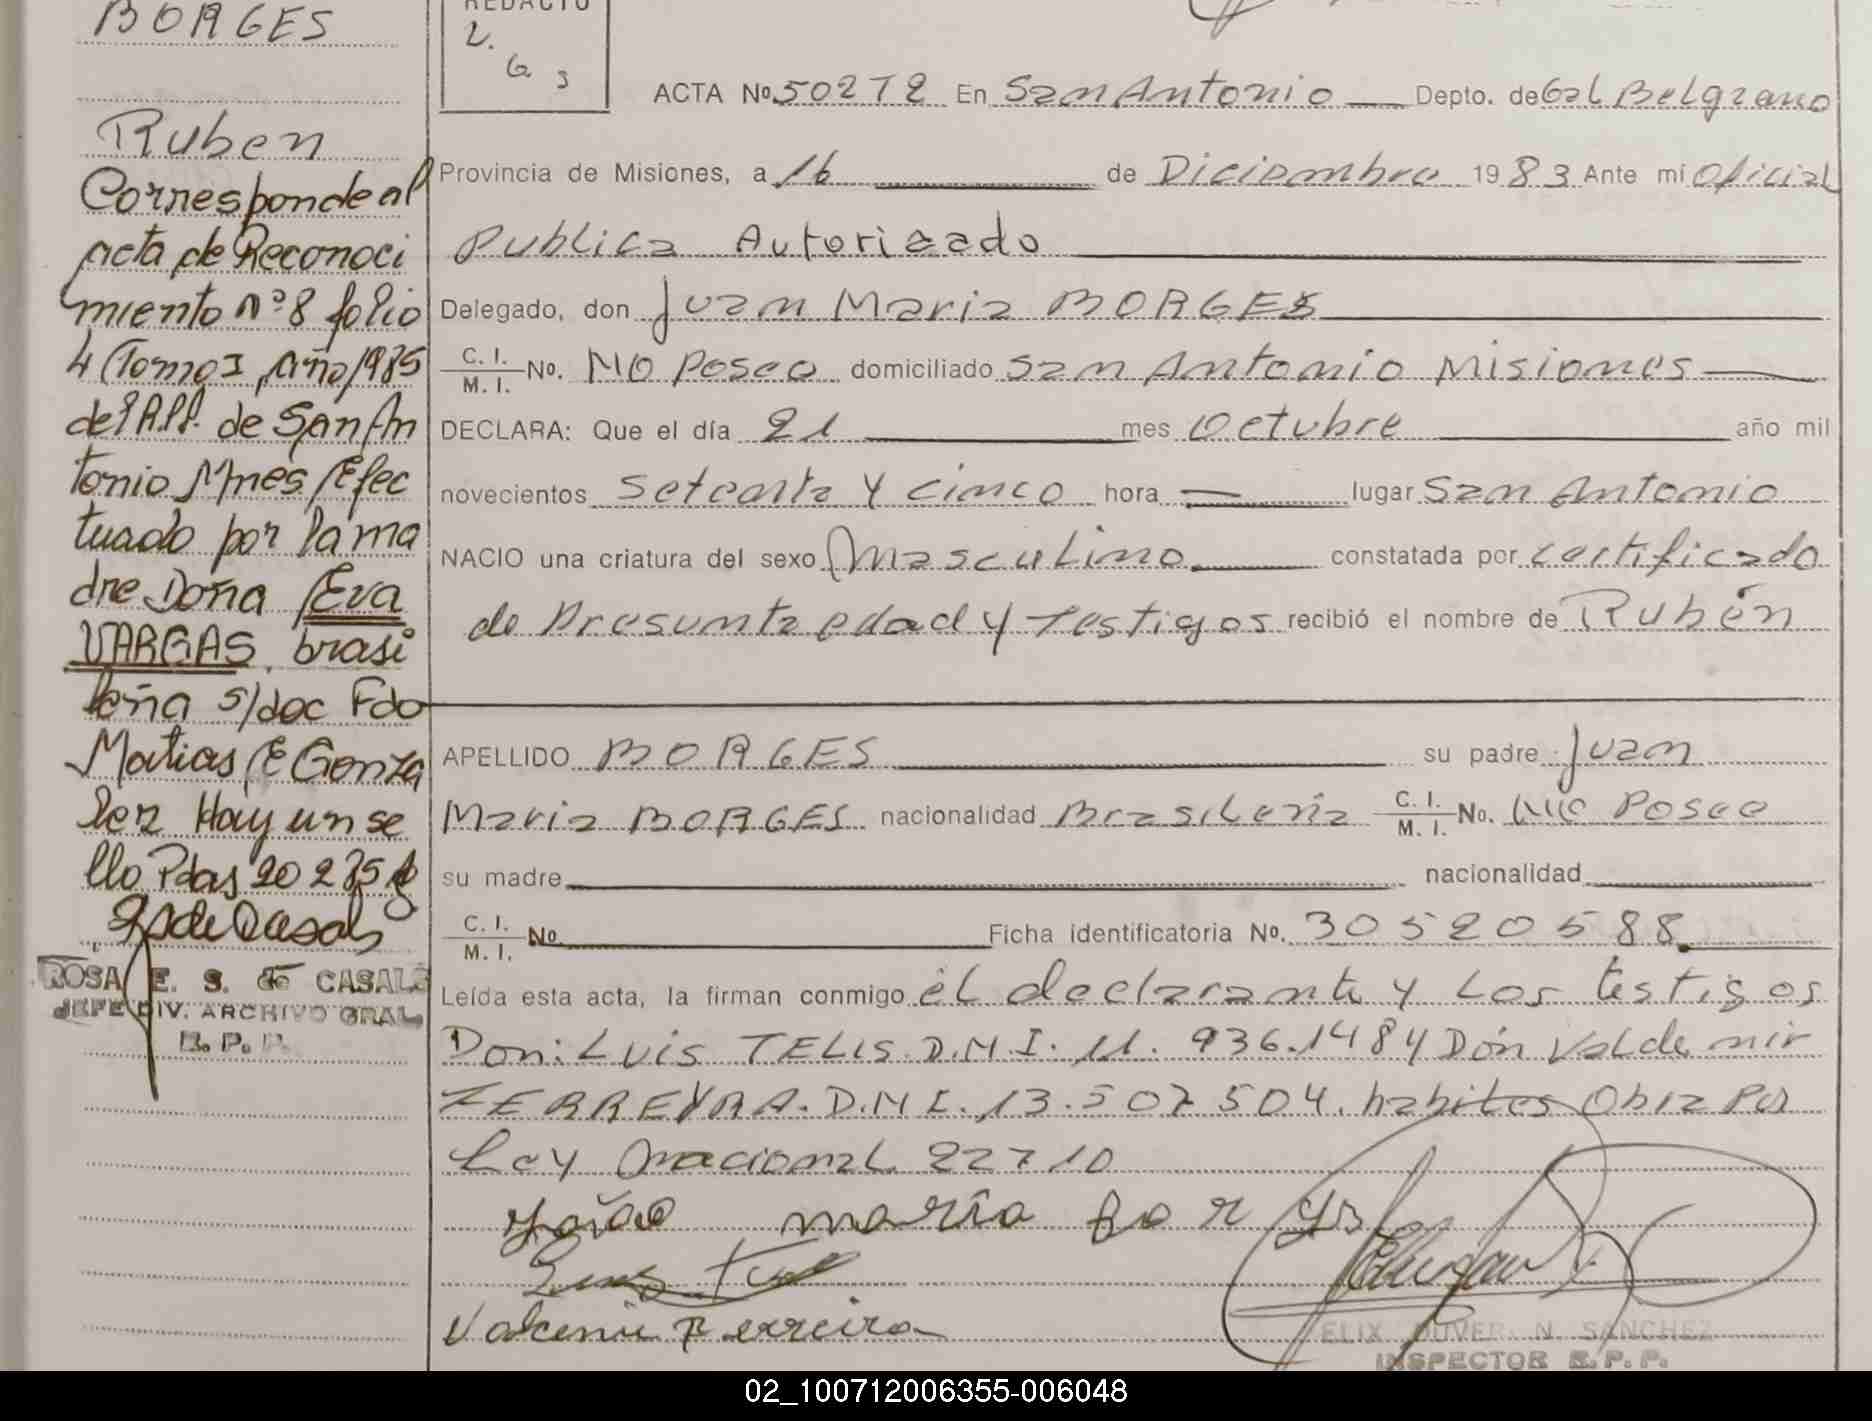 BORGES
Ruben
Corresponde al
acta de Reconoci
miento Nº 8 folio
4 Tomo I año 1985
del R.P.P. de San An
tonio Mnes Efec
tuado por la ma
dre Doña Eva
VARGAS, brasi
leña s/doc Fdo
Matias E Gonza
lez Hay un se
llo Pdas 20 2 85
ROSA E. S. de CASALS
JEFE DIV. ARCHIVO GRAL.
R. P. P.
REDACTO
L.
G S
ACTA Nº 50272 En San Antonio Depto. de Gal Belgrano
Provincia de Misiones, a 16 de Diciembre 1983 Ante mí Oficial
Publica Autorizado
Delegado, don Juan Maria BORGES
C. I. / M. I. No. NO Posee domiciliado San Antonio Misiones
DECLARA: Que el día 21 mes Octubre año mil
novecientos Setenta y cinco hora — lugar San Antonio
NACIO una criatura del sexo Masculino constatada por certificado
de Presunta edad y Testigos recibió el nombre de Rubén
APELLIDO BORGES su padre Juan
Maria BORGES nacionalidad Brasileña C. I. / M. I. No. No Posee
su madre nacionalidad
C. I. / M. I. No Ficha identificatoria Nº. 305205 88
Leída esta acta, la firman conmigo él declarante y Los testigos
Don: Luis TELIS. D.N.I. 11. 936.148 y Dón Valdemir
FERREYRA. D.N.I. 13.507504. habites Obra Por
Ley Nacional 22710
João maria borges
Luis
Valdemir Ferreira
FELIX DUVER N. SANCHEZ
INSPECTOR R.P.P.
02_100712006355-006048